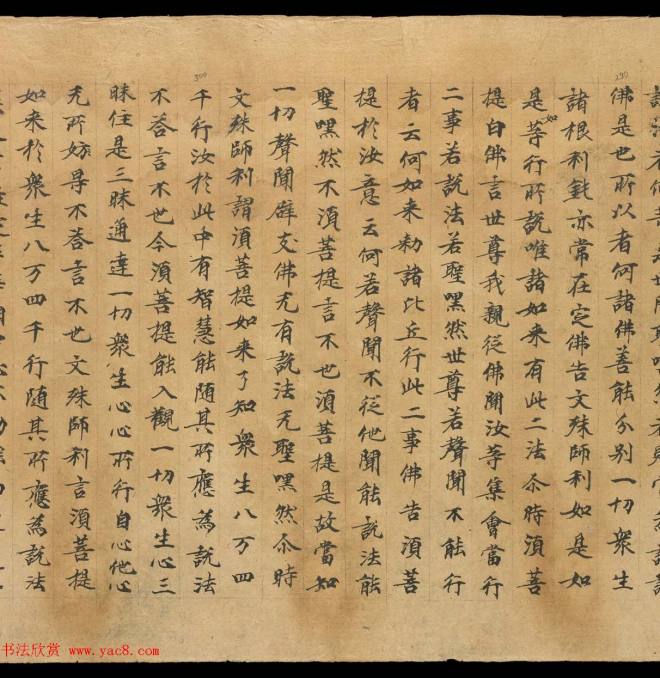 290
佛是也所以者何諸佛善能分別一切衆生
諸根利鈍亦常在定佛告文殊師利如是如
是如等行所說唯諸如来有此二法尒時湏菩
提白佛言世尊我親從佛聞汝等集會當行
二事若說法若聖嘿然世尊若聲聞不能行
者云何如来勑諸比丘行此二事佛告湏菩
提於汝意云何若聲聞不從他聞能說法能
聖嘿然不湏菩提言不也湏菩提是故當知
一切聲聞辟支佛无有說法无聖嘿然尒時
文殊師利謂湏菩提如来了知衆生八万四
300
千行汝於此中有智慧能随其所應為說法
不荅言不也今湏菩提能入觀一切衆生心三
昧住是三昧通達一切衆生心心所行自心他心
无所妨㝵不荅言不也文殊師利言湏菩提
如来於衆生八万四千行随其所應為說法
书法欣赏 www.yac8.com